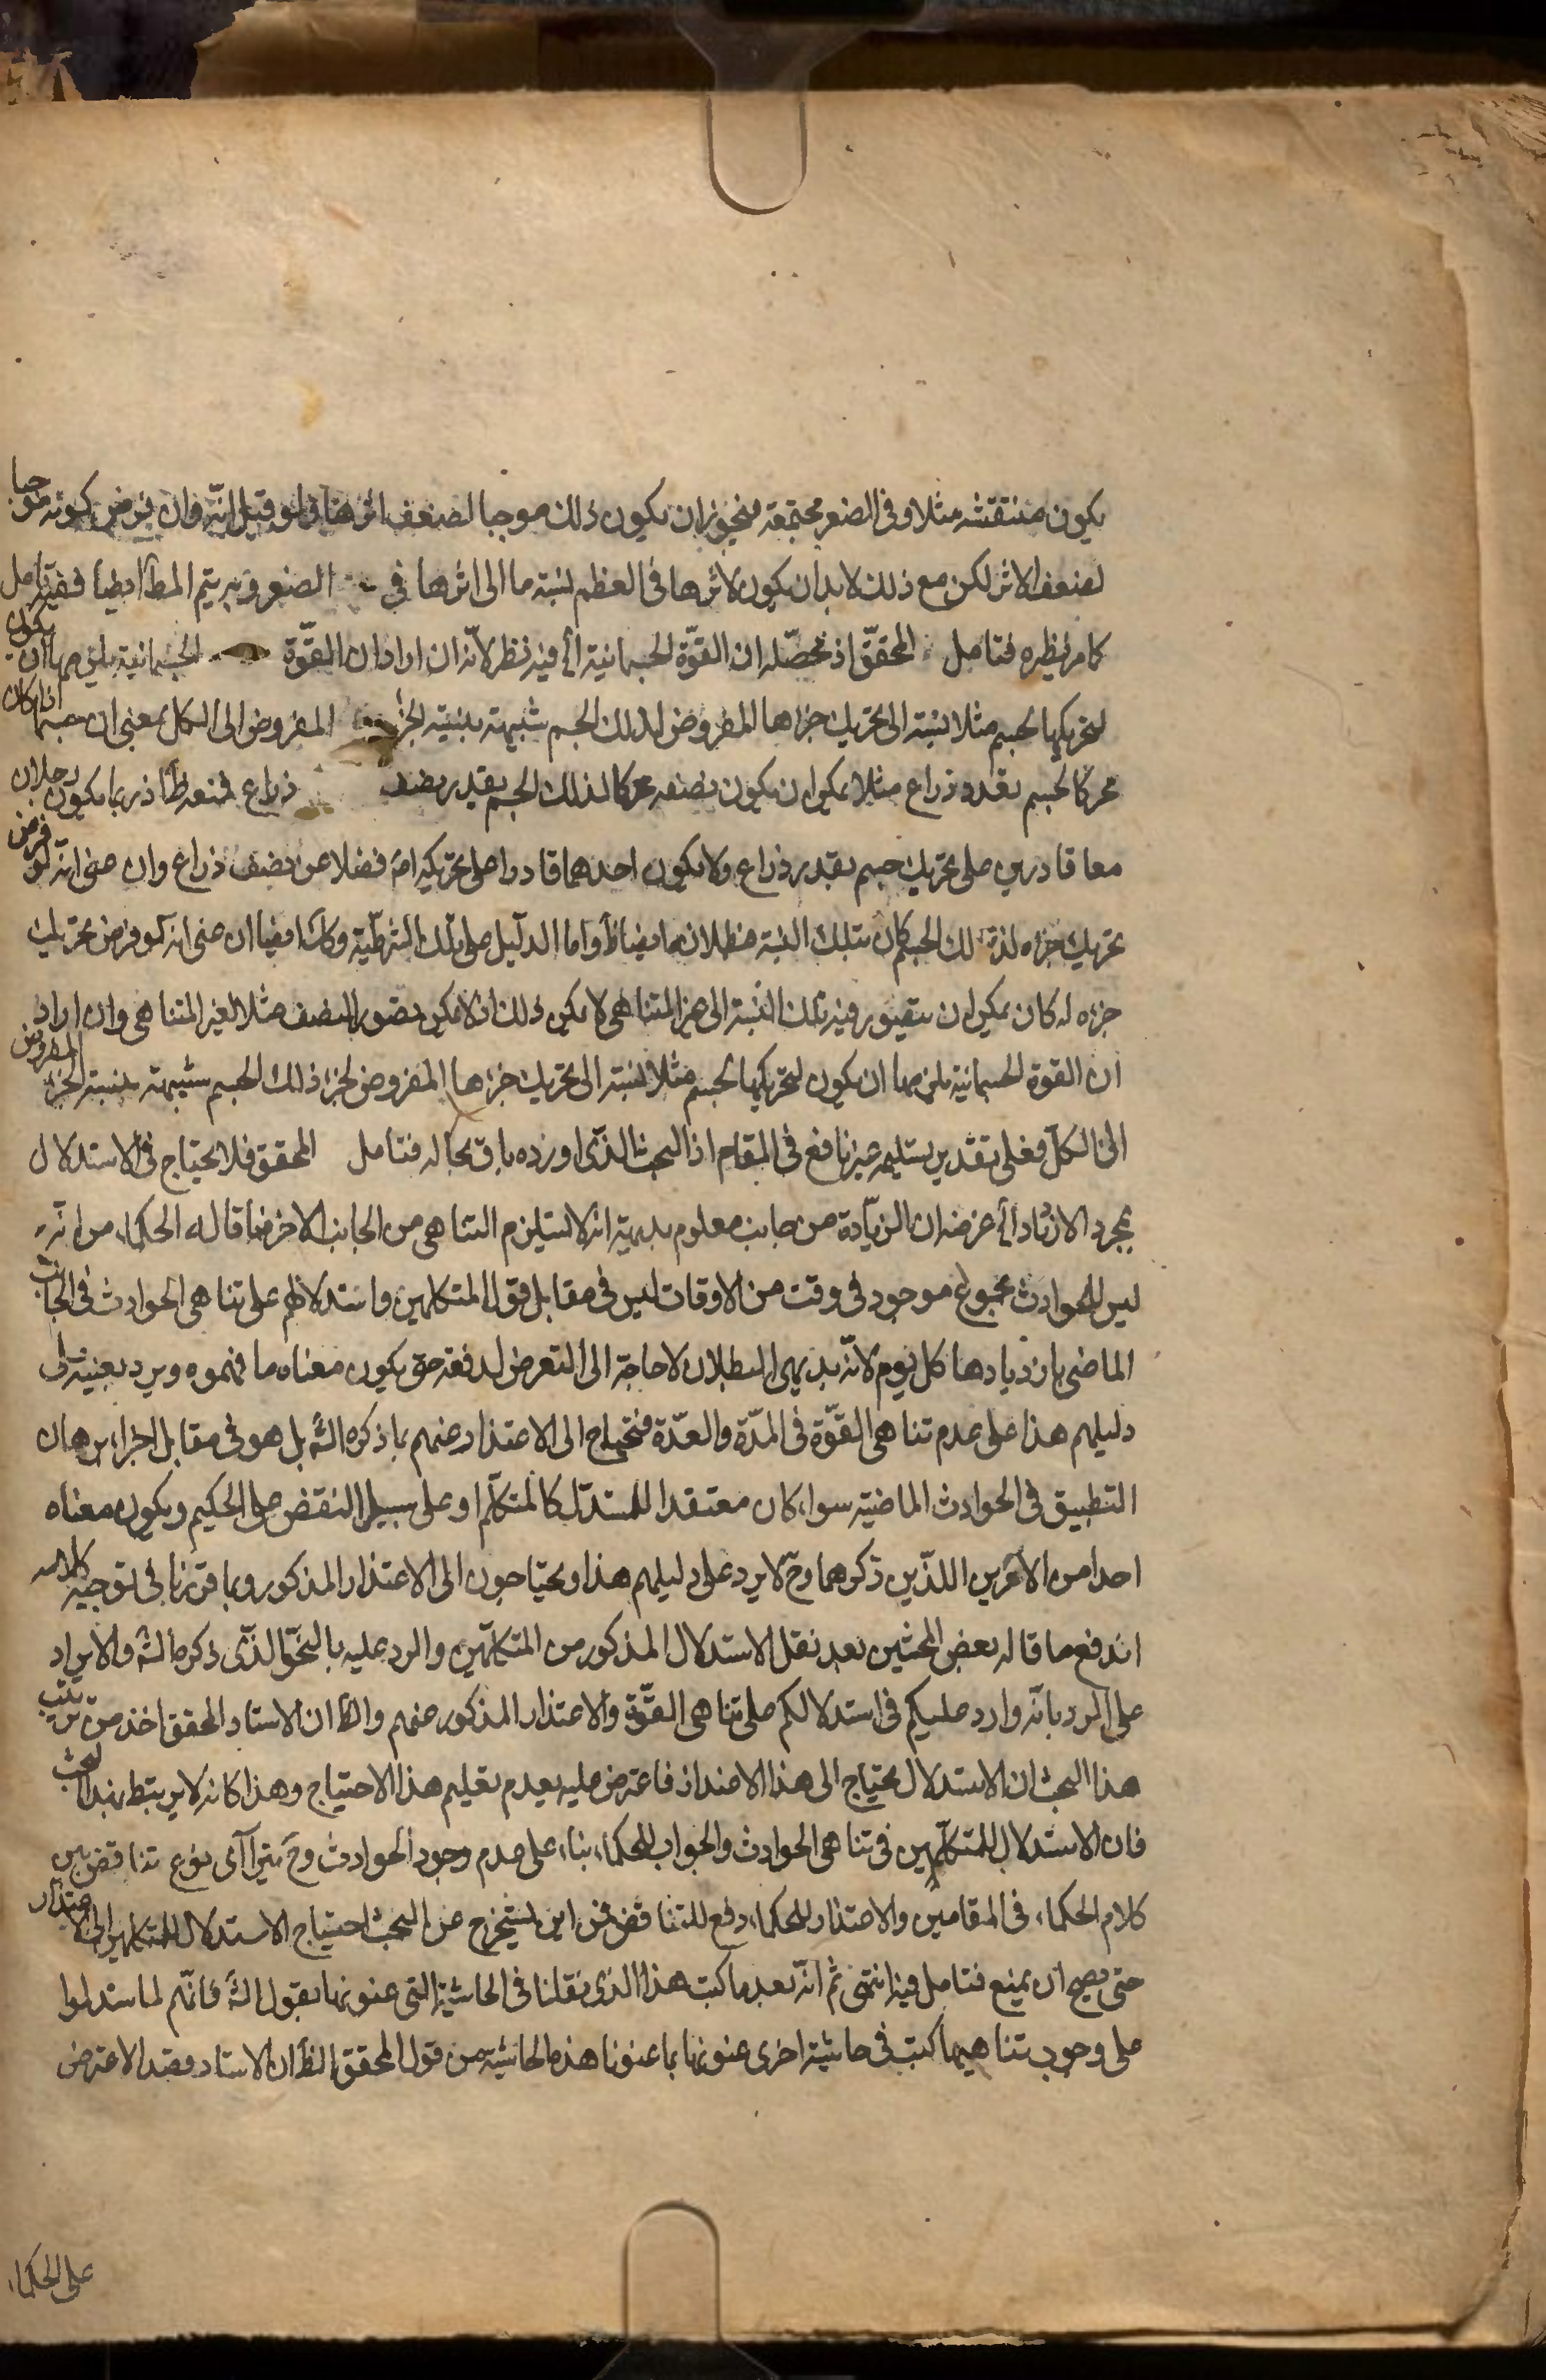 يكون منتقشه مثلا وفى الصغر مجتمعة فيجوز ان يكون ذلك موجبا لضعف اثرها فلو قيل انه وان فرض كونه موجبا
لضعف الاثر لكن مع ذلك لا بد ان يكون لاثرها فى العظم نسبة ما الى اثرها فى الصغر وبه يتم المط ايضا ففيه تامل
كما مر نظيره فتامل المحقق اذ محصّله ان القوّة الجسمانية آلخ فيه نظر لانه ان اراد ان القوّة الجسمانية يلزمها ان يكون
لتحريكها لجسم مثلا نسبة الى تحريك جزءها المفروض لذلك الجسم شبيهة بنسبة الجزء المفروض الى الكل بمعنى ان جسما اذا كان
محركا لجسم بقدر ذراع مثلا يمكن ان يكون نصفه محركا لذلك الجسم بقدر نصف ذراع فمنعه ظ اذ ربما يكون رجلان
معا قادرين على تحريك جسم بقدر ذراع ولا يكون احدهما قادرا على تحريكه اصلا فضلا عن نصف ذراع وان عنى انه لو فرض
تحريك جزءه لذلك الجسم كان بتلك النسبة فبطلانه ايضا ظ واما الدليل على تلك الشرطية وكك ايضا ان عنى انه لو فرض تحريك
جزءه له كان يمكن ان يتصور فيه تلك النسبة الى غير المتناهى لا يمكن ذلك اذ لا يمكن تصور النصف مثلا لغير المتناهى وان اراد
ان القوة الجسمانية يلزمها ان يكون لتحريكها لجسم مثلا نسبة الى تحريك جزءها المفروض لجزء ذلك الجسم شبيهة بنسبة الجزء المفروض
الى الكل فعلى تقدير تسليمه غير نافع فى المقام اذ البحث الذى اورده باق بحاله فتامل المحقق فلا يحتاج فى الاستدلال
بمجرد الازدياد آلخ غرضه ان الزيادة من جانب معلوم بديهة انه لا يستلزم التناهى من الجانب الاخر فما قاله الحكماء من انه
ليس للحوادث مجموع موجود فى وقت من الاوقات ليس فى مقابل قول المتكلمين واستدلالهم على تناهى الحوادث فى الجانب
الماضى بازديادها كل يوم لانه بديهى البطلان لا حاجة الى التعرض لدفعه حتى يكون معناه ما فهموه ويرد بعينه على
دليلهم هذا على عدم تناهى القوّة فى المدّة والعدّة فيحتاج الى الاعتذار عنهم بما ذكره الش بل هو فى مقابل اجراء برهان
التطبيق فى الحوادث الماضية سواء كان معتقدا للمستدل كالمتكلم او على سبيل النقض على الحكيم ويكون معناه
احدا من الامرين اللذين ذكرهما وح لا يرد على دليلهم هذا ويحتاجون الى الاعتذار المذكور وبما قررنا فى توجيه كلامه
اندفع ما قاله بعض المحشين بعد نقل الاستدلال المذكور من المتكلمين والرد عليه بالنحو الذى ذكره الش والايراد
على الرد بانه وارد عليكم فى استدلالكم على تناهى القوّة والاعتذار المذكور عنهم والظ ان الاستاد المحقق اخذ من ترتيب
هذا البحث ان الاستدلال محتاج الى هذا الاعتذار فاعترض عليه بعدم تعليم هذا الاحتياج وهذا كانه لا يرتبط بهذا البحث
فان الاستدلال للمتكلمين فى تناهى الحوادث والجواب للحكماء بناء على عدم وجود الحوادث وح يتراآى نوع تناقض بين
كلام الحكماء فى المقامين والاعتذار للحكماء دفع للتناقض فمن اين يستخرج من البحث احتياج الاستدلال للمتكلمين الى الاعتذار
حتى يصح ان يمنع فتامل فيه انتهى ثم انه بعد ما كتب هذا الذى نقلنا فى الحاشية التى عنونها بقول الش فانهم لما استدلوا
على وجوب تناهيها كتب فى حاشية اخرى عنونها بما عنونا هذه الحاشية من قول المحقق الظ ان الاستاد قصد الاعتراض
على الحكماء